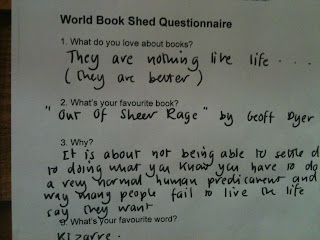 World Book Shed Questionnaire
1. What do you love about books?
They are nothing like life . . .
(they are better)
2. What's your favourite book?
"Out Of Sheer Rage" by Geoff Dyer
3. Why?
It is about not being able to settle d
to doing what you know you have to do
a very normal human predicament and
way many people fail to live the life
say they want
What's your favourite word?
Bizarre.